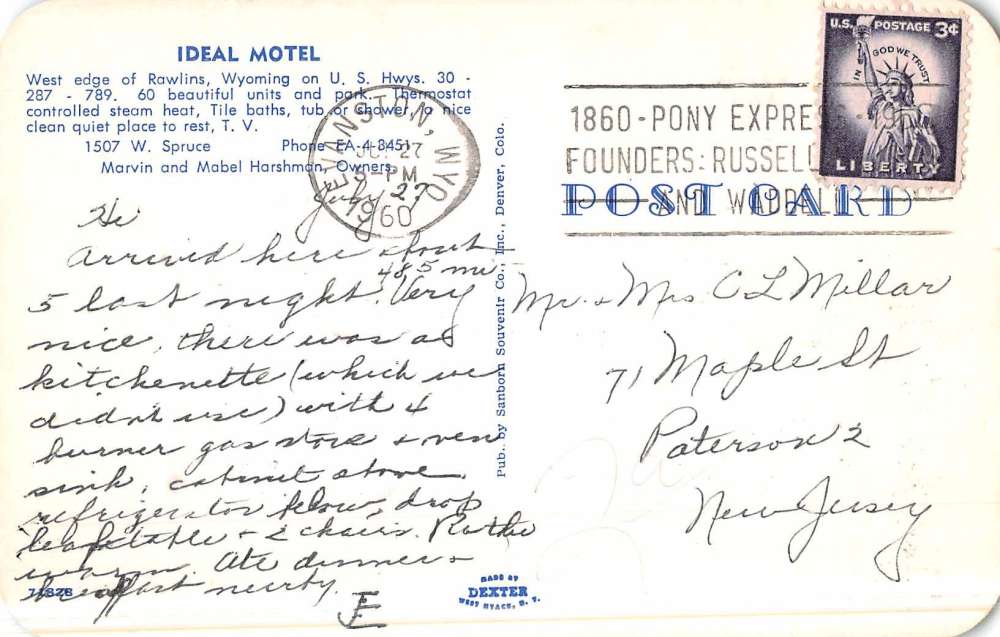 IDEAL MOTEL
West edge of Rawlins, Wyoming on U. S. Hwys. 30 -
287 - 789. 60 beautiful units and park. Thermostat
controlled steam heat, Tile baths, tub or shower, a nice
clean quiet place to rest, T. V.
1507 W. Spruce Phone EA-4-3451
Marvin and Mabel Harshman, Owners
July 27
Hi
Arrived here about
485 mi
5 last night. Very
nice, there was a
kitchenette (which we
didn't use) with 4
burner gas stove & oven
sink, cabinet above
refrigerator below, drop
leaf table & 2 chairs. Rather
warm. Ate dinner &
breakfast nearby.
JE
71828
Pub. by Sanborn Souvenir Co., Inc., Denver, Colo.
MADE BY
DEXTER
WEST NYACK, N. Y.
EVANSTON, WYO.
27
PM
1960
1860 - PONY EXPRE
FOUNDERS: RUSSELL
AND WADDELL
POST CARD
U.S. POSTAGE 3¢
IN GOD WE TRUST
LIBERTY
Mr. & Mrs C L Millar
71 Maple St
Paterson 2
New Jersey